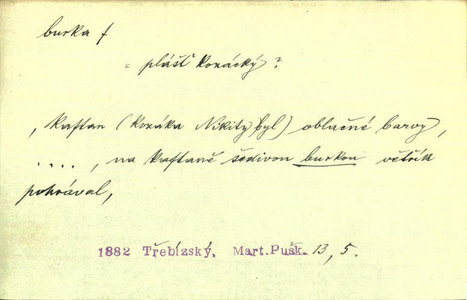 burka f
= plášť kozácký?
„kaftan (kozáka Nikity byl) oblačné barvy,
...., na kaftaně šedivou burkou větřík
pohrával,
1882 Třebízský. Mart.Pušk. 13, 5.